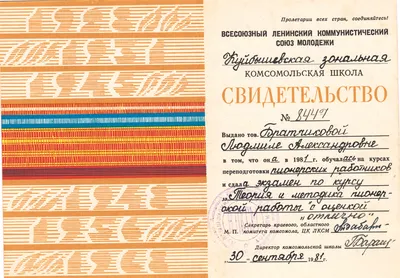 Пролетарии всех стран, соединяйтесь!
ВСЕСОЮЗНЫЙ ЛЕНИНСКИЙ КОММУНИСТИЧЕСКИЙ
СОЮЗ МОЛОДЕЖИ
Куйбышевская зональная
КОМСОМОЛЬСКАЯ ШКОЛА
СВИДЕТЕЛЬСТВО
№ 8447
Выдано тов.
Людмиле Александровне
в том, что она в 1981 г. обучалась на курсах
переподготовки пионерских работников
и сдала экзамен по курсу
"Теория и методика пионер-
ской работы" с оценкой
"отлично"
Секретарь краевого, областного
М. П. комитета комсомола, ЦК ЛКСМ
Директор комсомольской школы
30 сентября 1981 г.